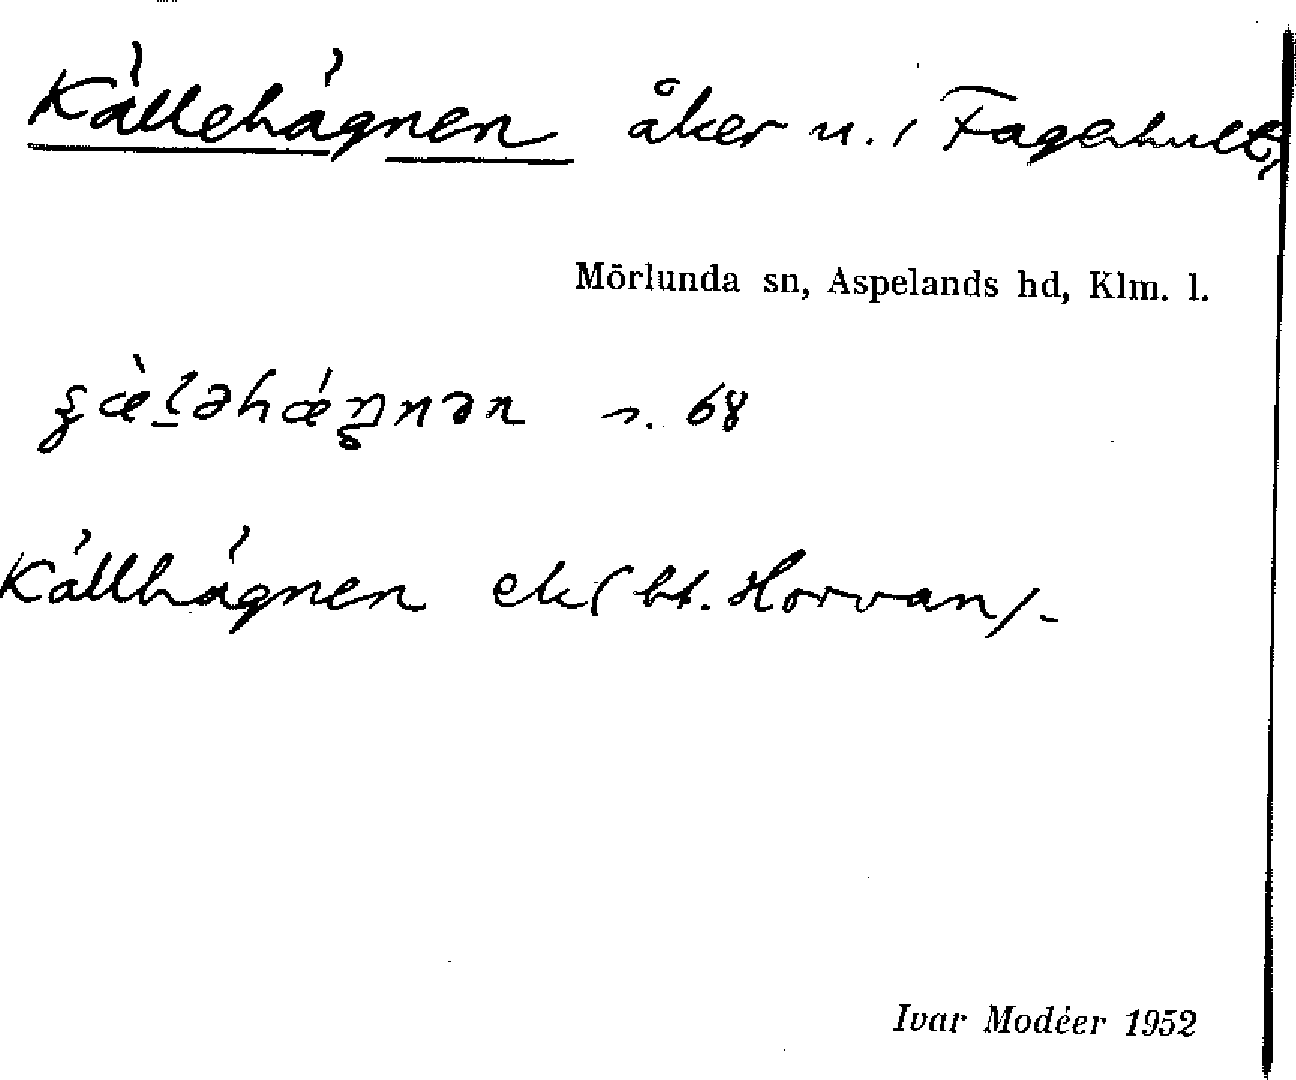 Källehägnen åker n. i Fagerhult,
Mörlunda sn, Aspelands hd, Klm. l.
s. 68
Källhägnen ek (bt. Horvan).
Ivar Modéer 1952